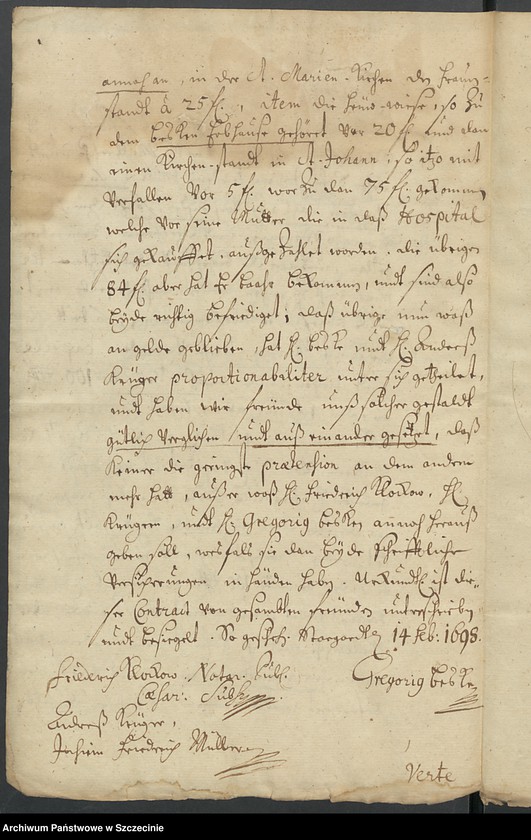 annoch an, in der St. Marien-Kirchen den Frauen-
standt à 25 fl., item die Heuw-wiese, so zu
dem besten gehöret vor 20 fl. und dan
einen Kirchen-standt in St. Johann, so itzo mit
verfallen vor 5 fl. worzu dan 75 fl. gekommen
welche vor seine Mutter die in daß Hospital
sich gekauffet, außgezahlet worden. die übrigen
84 fl. aber hat Er baahr bekommen, undt sind also
beyde richtig befriediget; daß übrige nun waß
an gelde geblieben, hat H. beske undt H. Andreß
Krüger proportionabiliter unter sich getheilet,
undt haben wir freunde unß solcher gestaldt
gütlich verglichen undt auß einander gesetzet, daß
Keiner die geringste prætension an dem andern
mehr hatt, außer waß H. Friedrich Rockow, H.
Krügern, undt H. Gregorig besken annoch herauß
geben soll, weßfals sie dan beyde schrifftliche
versicherungen in händen haben. Uhrkundtl. ist die-
ser Contract von gesambten freunden unterschrieben
undt besiegelt. So gescheh. Stargardt 14 Feb: 1698.
Friedrich Rockow. Notar. Publ.
Cæsar. Subsc.
Gregorig besken
Andreß Krüger,
Jochim Friedrich Müller
Verte
Archiwum Państwowe w Szczecinie